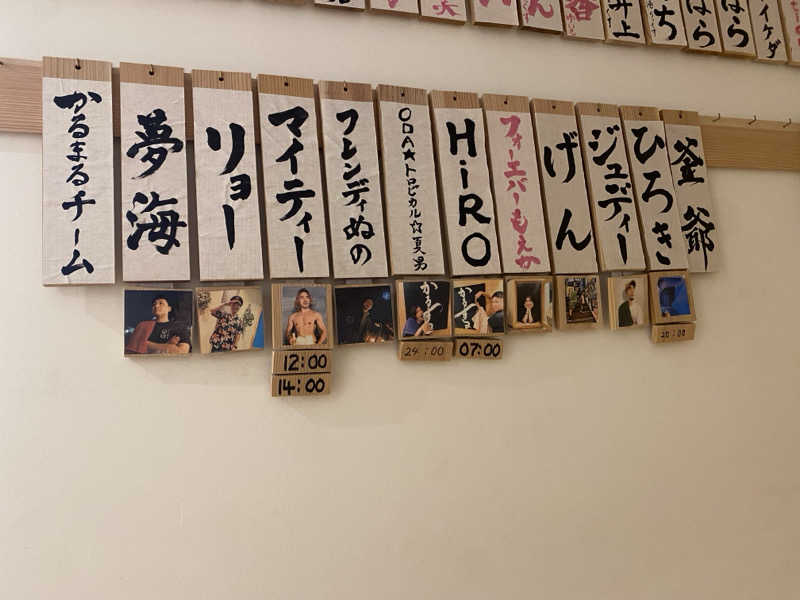 井上
はら
はら
イケダ
かるまるチーム
夢海
リョー
マイティー
フレンディぬの
ODA★トロピカル☆夏男
HiRO
フォーエバーもえか
げん
ジュディー
ひろき
釜爺
かるまる
かるまる
12:00
14:00
24:00
07:00
20:00